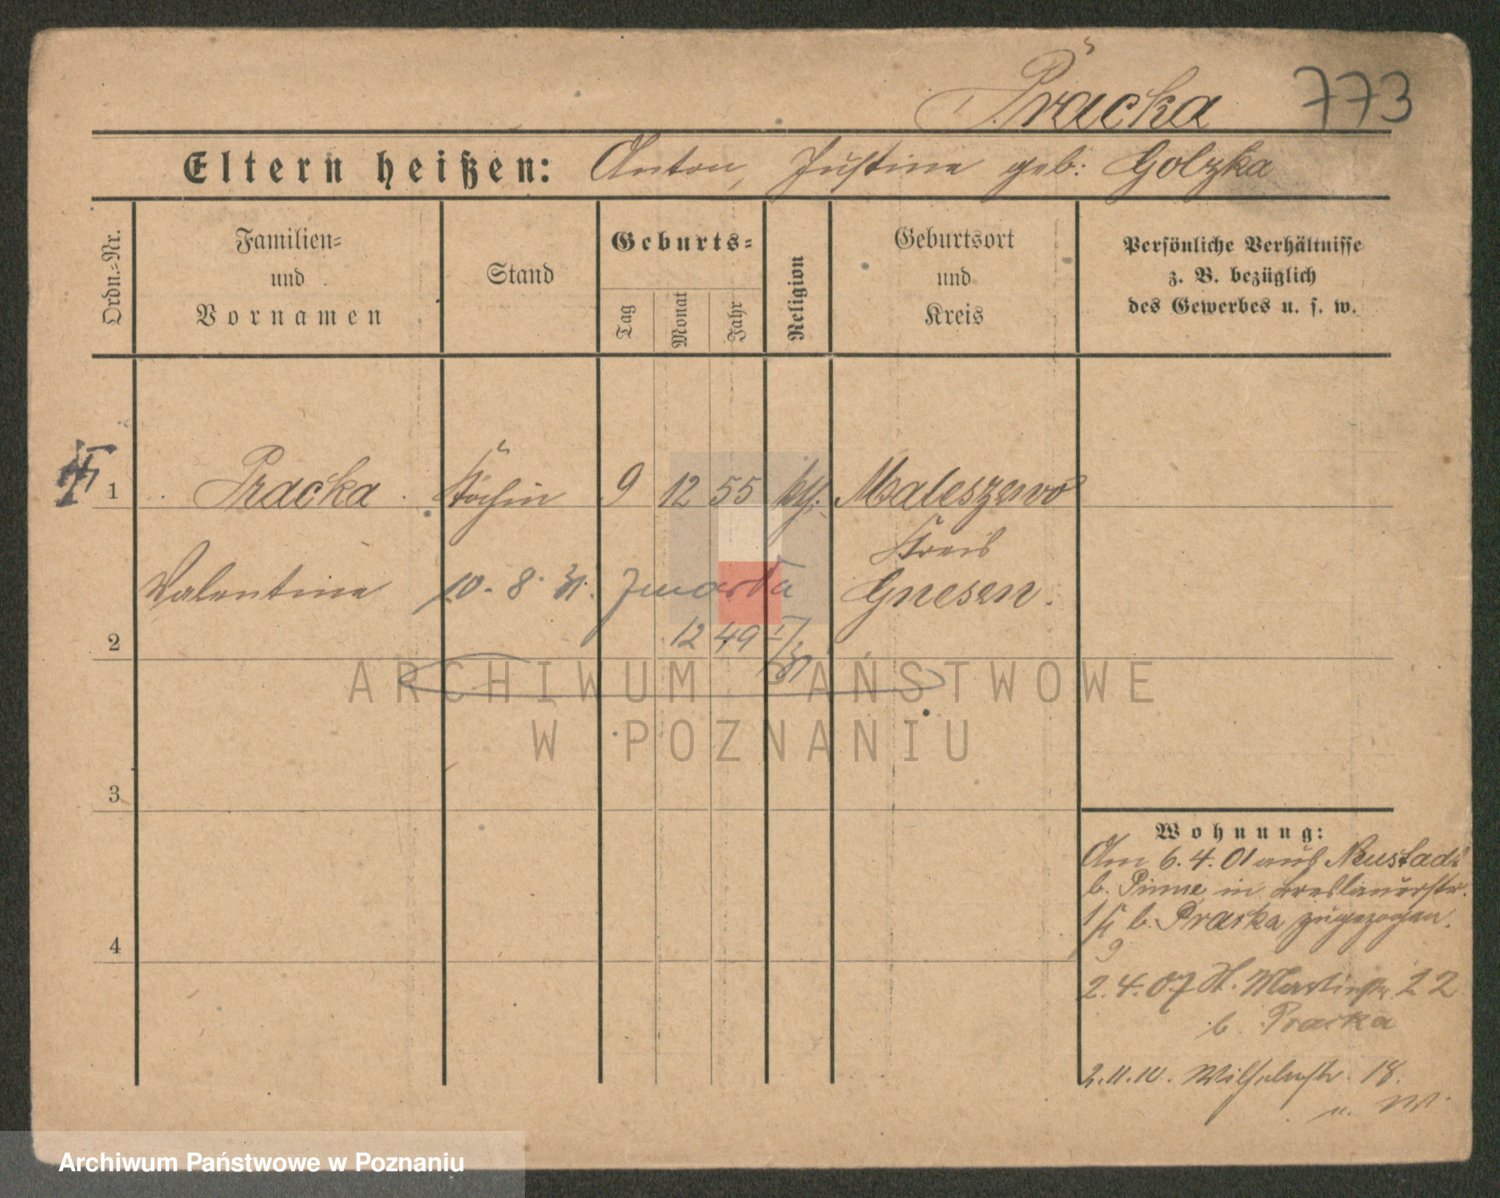 Pracka 773
Eltern heißen: Anton, Justine geb: Golzka
Ordn.-Nr.
Familien-
und
Vornamen
Stand
Geburts-
Tag
Monat
Jahr
Religion
Geburtsort
und
Kreis
Persönliche Verhältnisse
z. B. bezüglich
des Gewerbes u. s. w.
1 Pracka Köchin 9 12 55 kth. Maleszewo
Kreis
Valentine 10. 8. 31. zmarła Gnesen.
2 12 49
31
3
4
ARCHIWUM PAŃSTWOWE
W POZNANIU
Wohnung:
Am 6.4.01 aus Neustadt
b. Pinne in Breslauerstr.
b. Pracka zugezogen.
9
2.4.07 St. Martinstr. 22
b. Pracka
2.11.10. Wilhelmstr. 18.
Archiwum Państwowe w Poznaniu